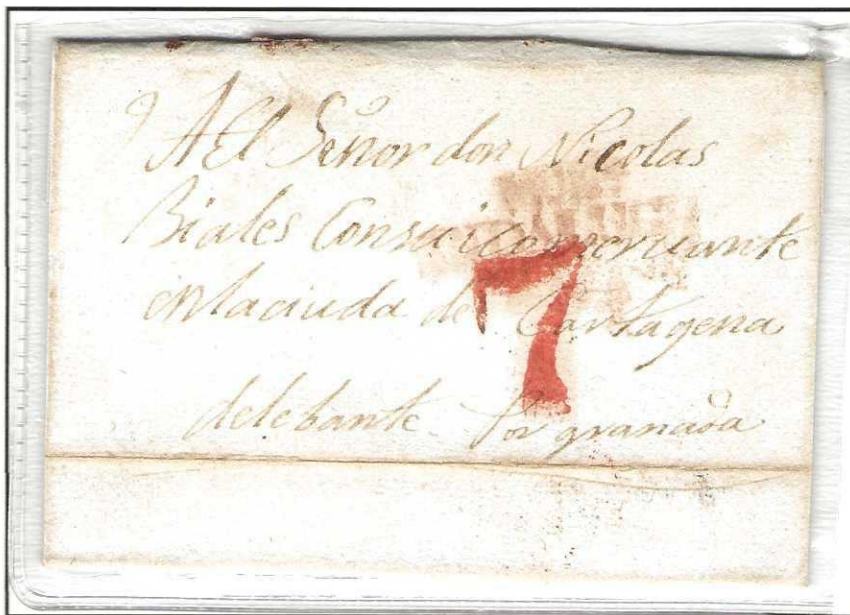 A El Señor don Nicolas
Biales Consul i comerciante
en la ciuda de Cartagena
7
delebante por granada